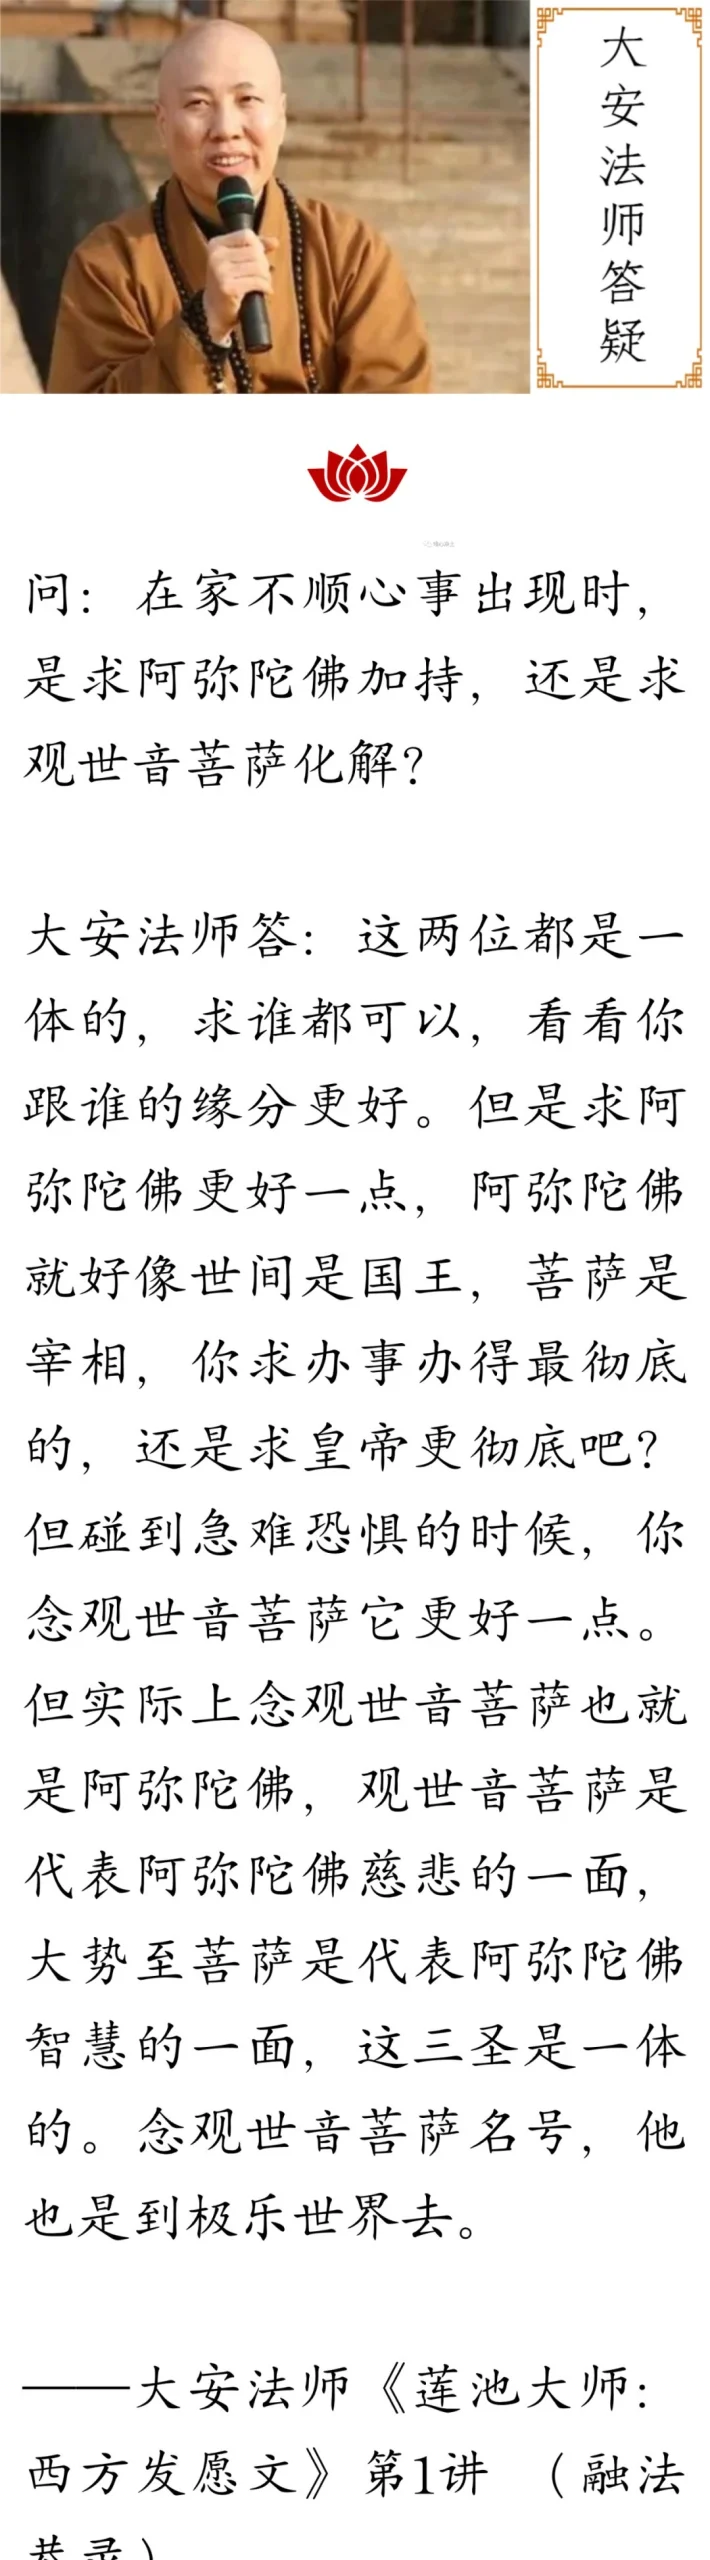 大安法师答疑
问：在家不顺心事出现时，
是求阿弥陀佛加持，还是求
观世音菩萨化解？
大安法师答：这两位都是一
体的，求谁都可以，看看你
跟谁的缘分更好。但是求阿
弥陀佛更好一点，阿弥陀佛
就好像世间是国王，菩萨是
宰相，你求办事办得最彻底
的，还是求皇帝更彻底吧？
但碰到急难恐惧的时候，你
念观世音菩萨它更好一点。
但实际上念观世音菩萨也就
是阿弥陀佛，观世音菩萨是
代表阿弥陀佛慈悲的一面，
大势至菩萨是代表阿弥陀佛
智慧的一面，这三圣是一体
的。念观世音菩萨名号，他
也是到极乐世界去。
——大安法师《莲池大师：
西方发愿文》第1讲 （融法
恭录）